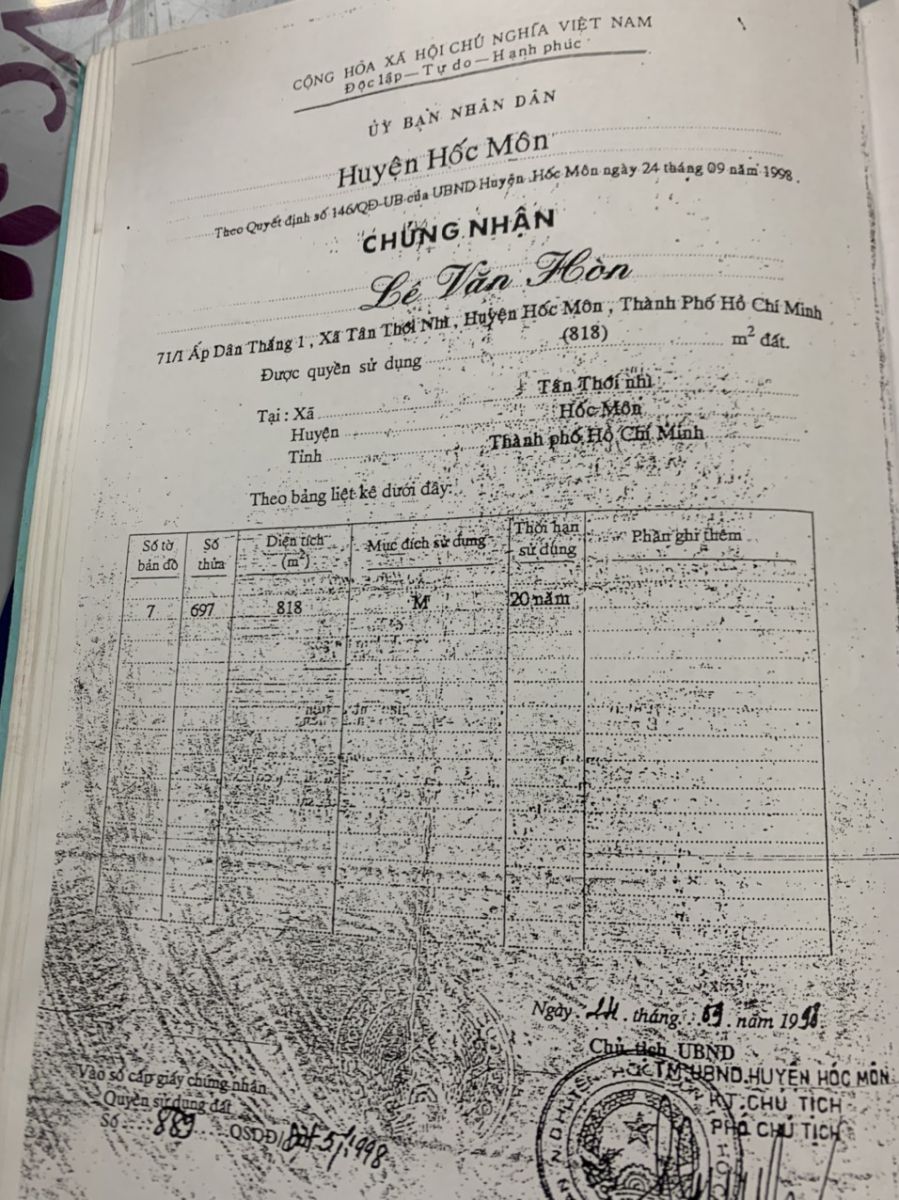 CỘNG HÒA XÃ HỘI CHỦ NGHĨA VIỆT NAM
Độc lập — Tự do — Hạnh phúc
ỦY BAN NHÂN DÂN
Huyện Hốc Môn
Theo Quyết định số 146/QĐ-UB của UBND Huyện Hốc Môn ngày 24 tháng 09 năm 1998.
CHỨNG NHẬN
Lê Văn Hòn
71/1 Ấp Dân Thắng 1 , Xã Tân Thới Nhì , Huyện Hốc Môn , Thành Phố Hồ Chí Minh
Được quyền sử dụng (818) m² đất.
Tại : Xã Tân Thới nhì
Huyện Hốc Môn
Tỉnh Thành phố Hồ Chí Minh
Theo bảng liệt kê dưới đây:
Số tờ bản đồ Số thửa Diện tích (m²) Mục đích sử dụng Thời hạn sử dụng Phần ghi thêm
7 697 818 M 20 năm
Ngày 24 tháng 09 năm 1998
Chủ tịch UBND
TM UBND.HUYỆN HÓC MÔN
KT.CHỦ TỊCH
PHÓ CHỦ TỊCH
Vào sổ cấp giấy chứng nhận
Quyền sử dụng đất
Số 889 QSDĐ/